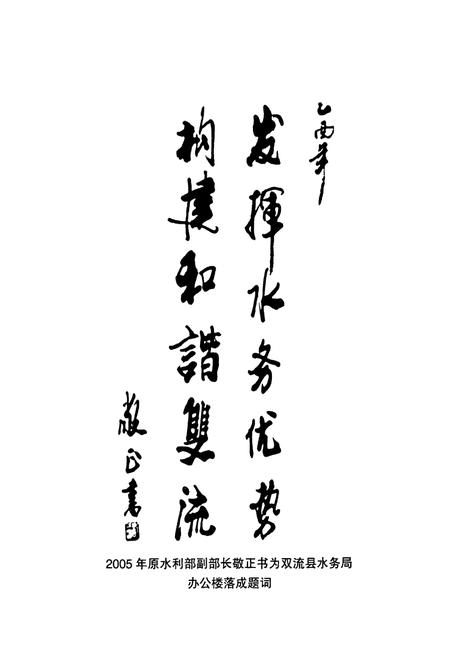 乙酉年
发揮水务优势
构揵和谐雙流
敬正書
2005 年原水利部副部长敬正书为双流县水务局
办公楼落成题词